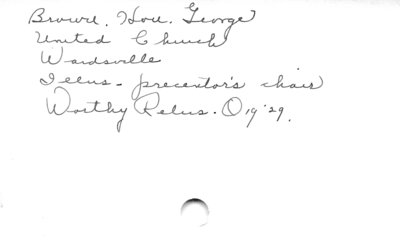 Brown, Hon. George
United Church
Wardsville
Illus - precentor's chair
Worthy Relus. O 19 '29.